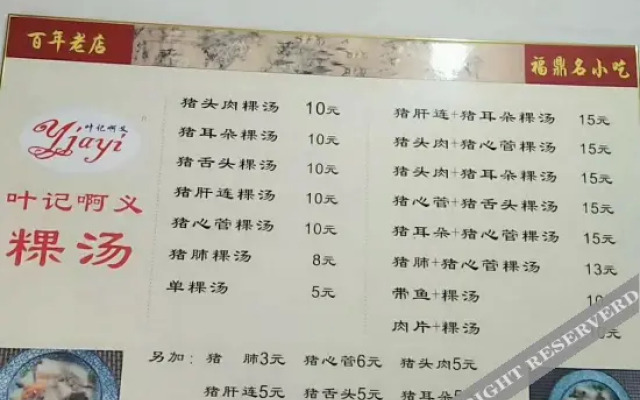 百年老店
福鼎名小吃
叶记啊义
yjayi
叶记啊义
粿汤
猪头肉粿汤 10元
猪耳朵粿汤 10元
猪舌头粿汤 10元
猪肝连粿汤 10元
猪心管粿汤 10元
猪肺粿汤 8元
单粿汤 5元
猪肝连+猪耳朵粿汤 15元
猪头肉+猪心管粿汤 15元
猪头肉+猪耳朵粿汤 15元
猪心管+猪舌头粿汤 15元
猪耳朵+猪心管粿汤 15元
猪肺+猪心管粿汤 13元
带鱼+粿汤
肉片+粿汤
另加: 猪 肺3元 猪心管6元 猪头肉5元
猪肝连5元 猪舌头5元 猪耳朵5元
RIGHT RESERVERD